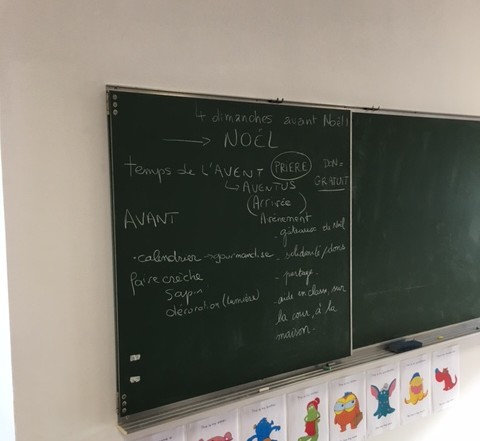 4 dimanches avant Noël
→ NOËL
temps de L'AVENT PRIÈRE DON
GRATUIT
↳ AVENTUS
(Arrivée)
Avènement
AVANT
- gâteaux de Noël
• calendrier → gourmandise
- solidarité/dons
faire crèche
- partage
sapin
- aide en classe, sur
décoration (lumière)
la cour, à la
maison.